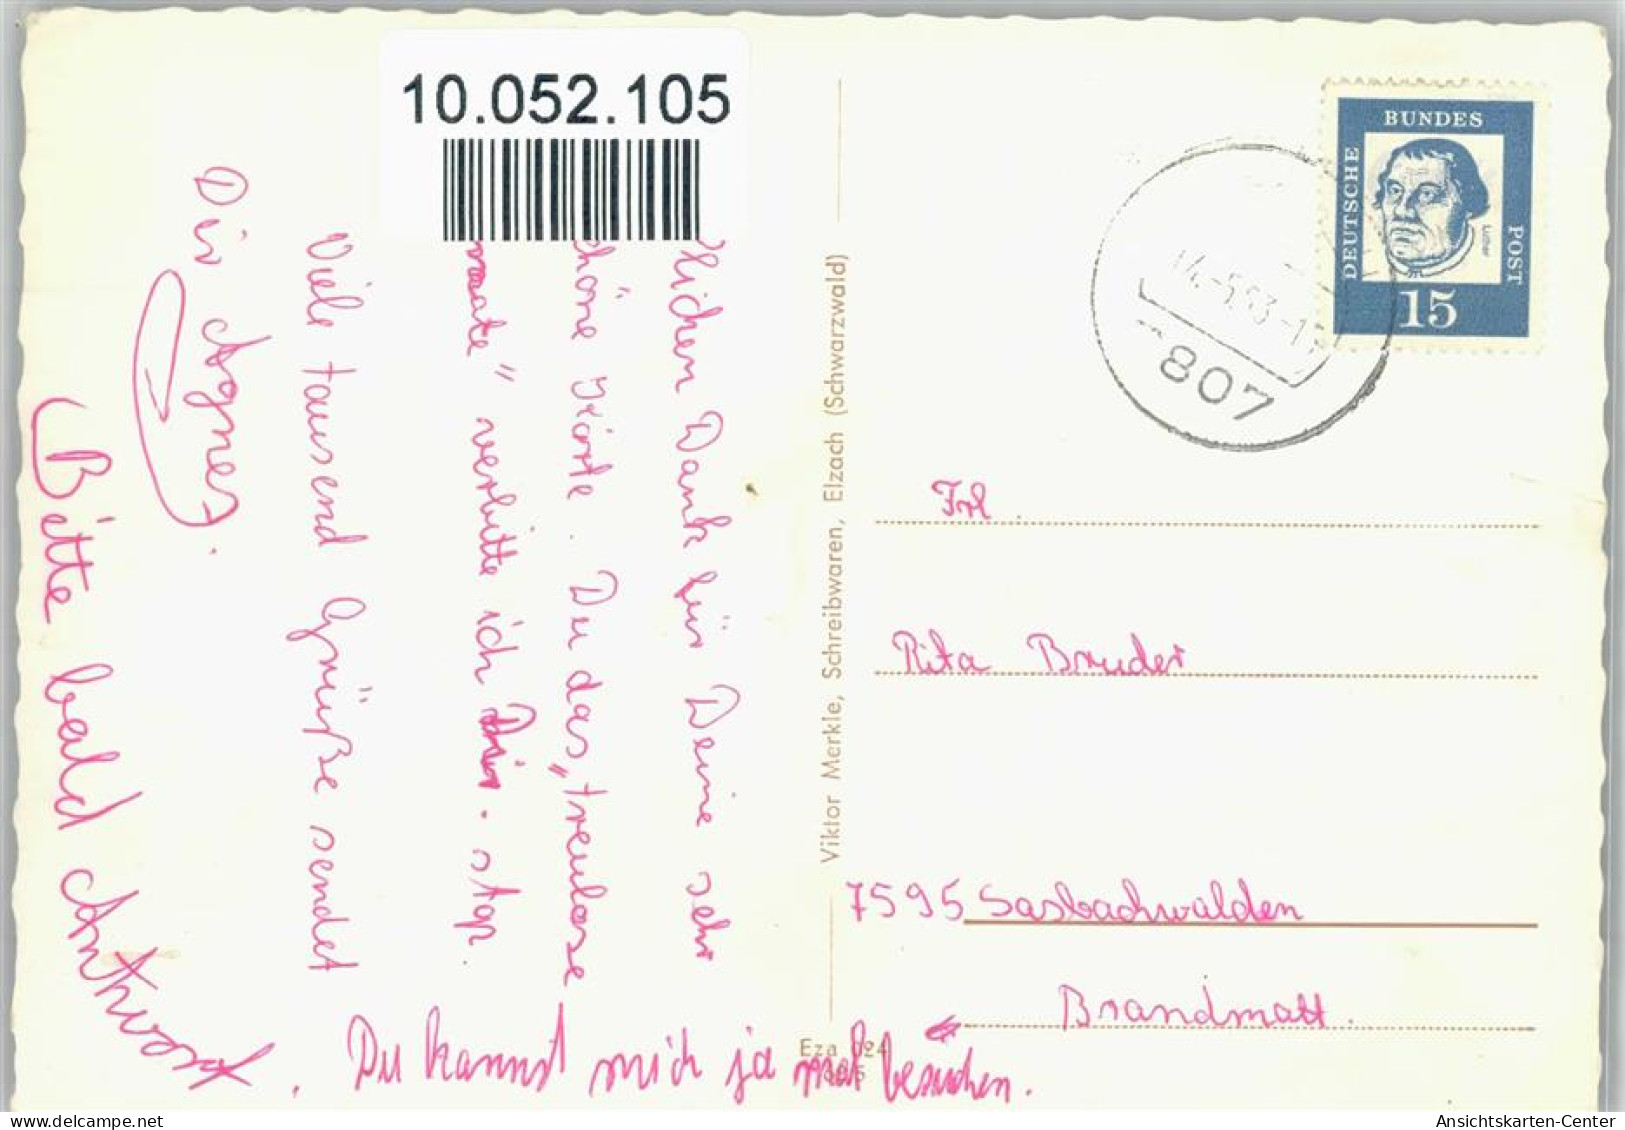 10.052.105
hlichen Dank für Deine sehr
chöne Karte. Du das „treulose
" verbitte ich stop.
Viele tausend Grüße sendet
Dir Agnes.
Bitte bald Antwort.
Du kannst mich ja mal besuchen.
Viktor Merkle, Schreibwaren, Elzach (Schwarzwald)
Eza 624
DEUTSCHE
BUNDES
POST
Luther
15
807
Frl.
Rita Bruder
7595 Sasbachwalden
Brandmatt.
Ansichtskarten-Center